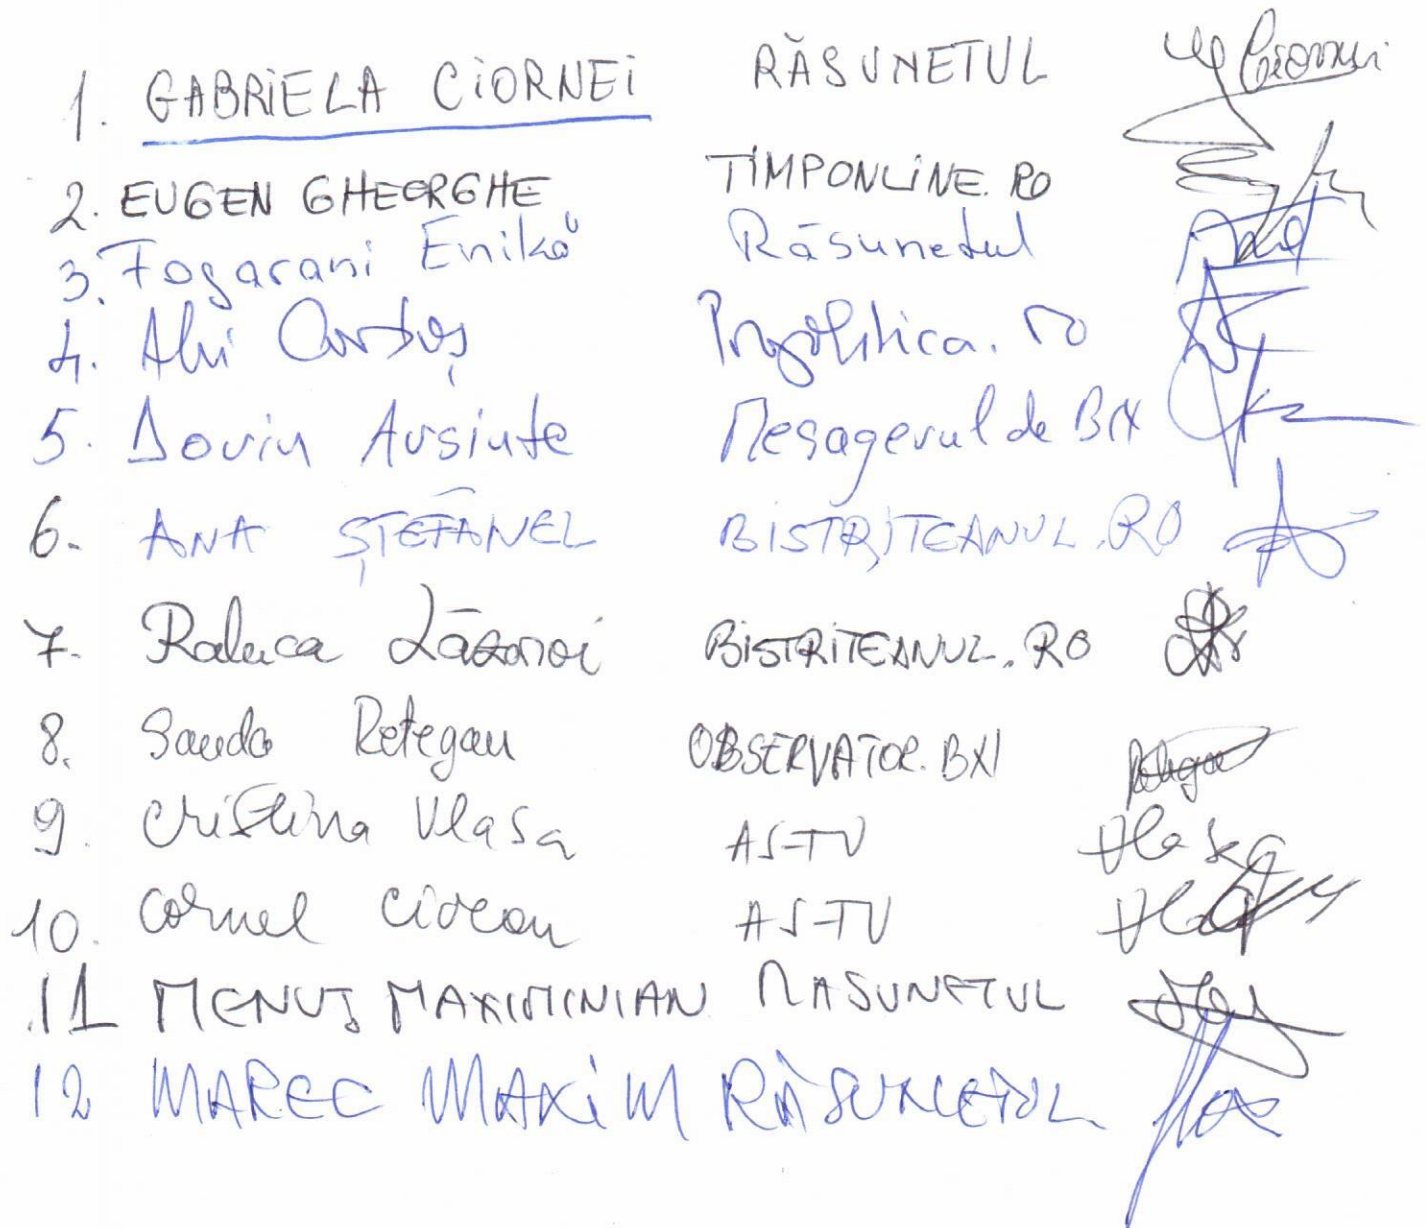 1. GABRIELA CIORNEI RĂSUNETUL Ciornei
2. EUGEN GHEORGHE TIMPONLINE.RO
3. Fogarasi Enikő Răsunetul
4. Alin Cordoș Propolitica.ro
5. Dorin Avsinte Mesagerul de BN
6. ANA ȘTEFĂNEL BISTRIȚEANUL.RO
7. Raluca Lăzăroi BISTRITEANUL.RO
8. Sanda Retegan OBSERVATOR.BN
9. Cristina Vlasa AS-TV Vlasa
10. Cornel Ciocan AS-TV
11 MENUȚ MAXIMINIAN RASUNETUL
12 MAREC MAXIM RĂSUNETUL